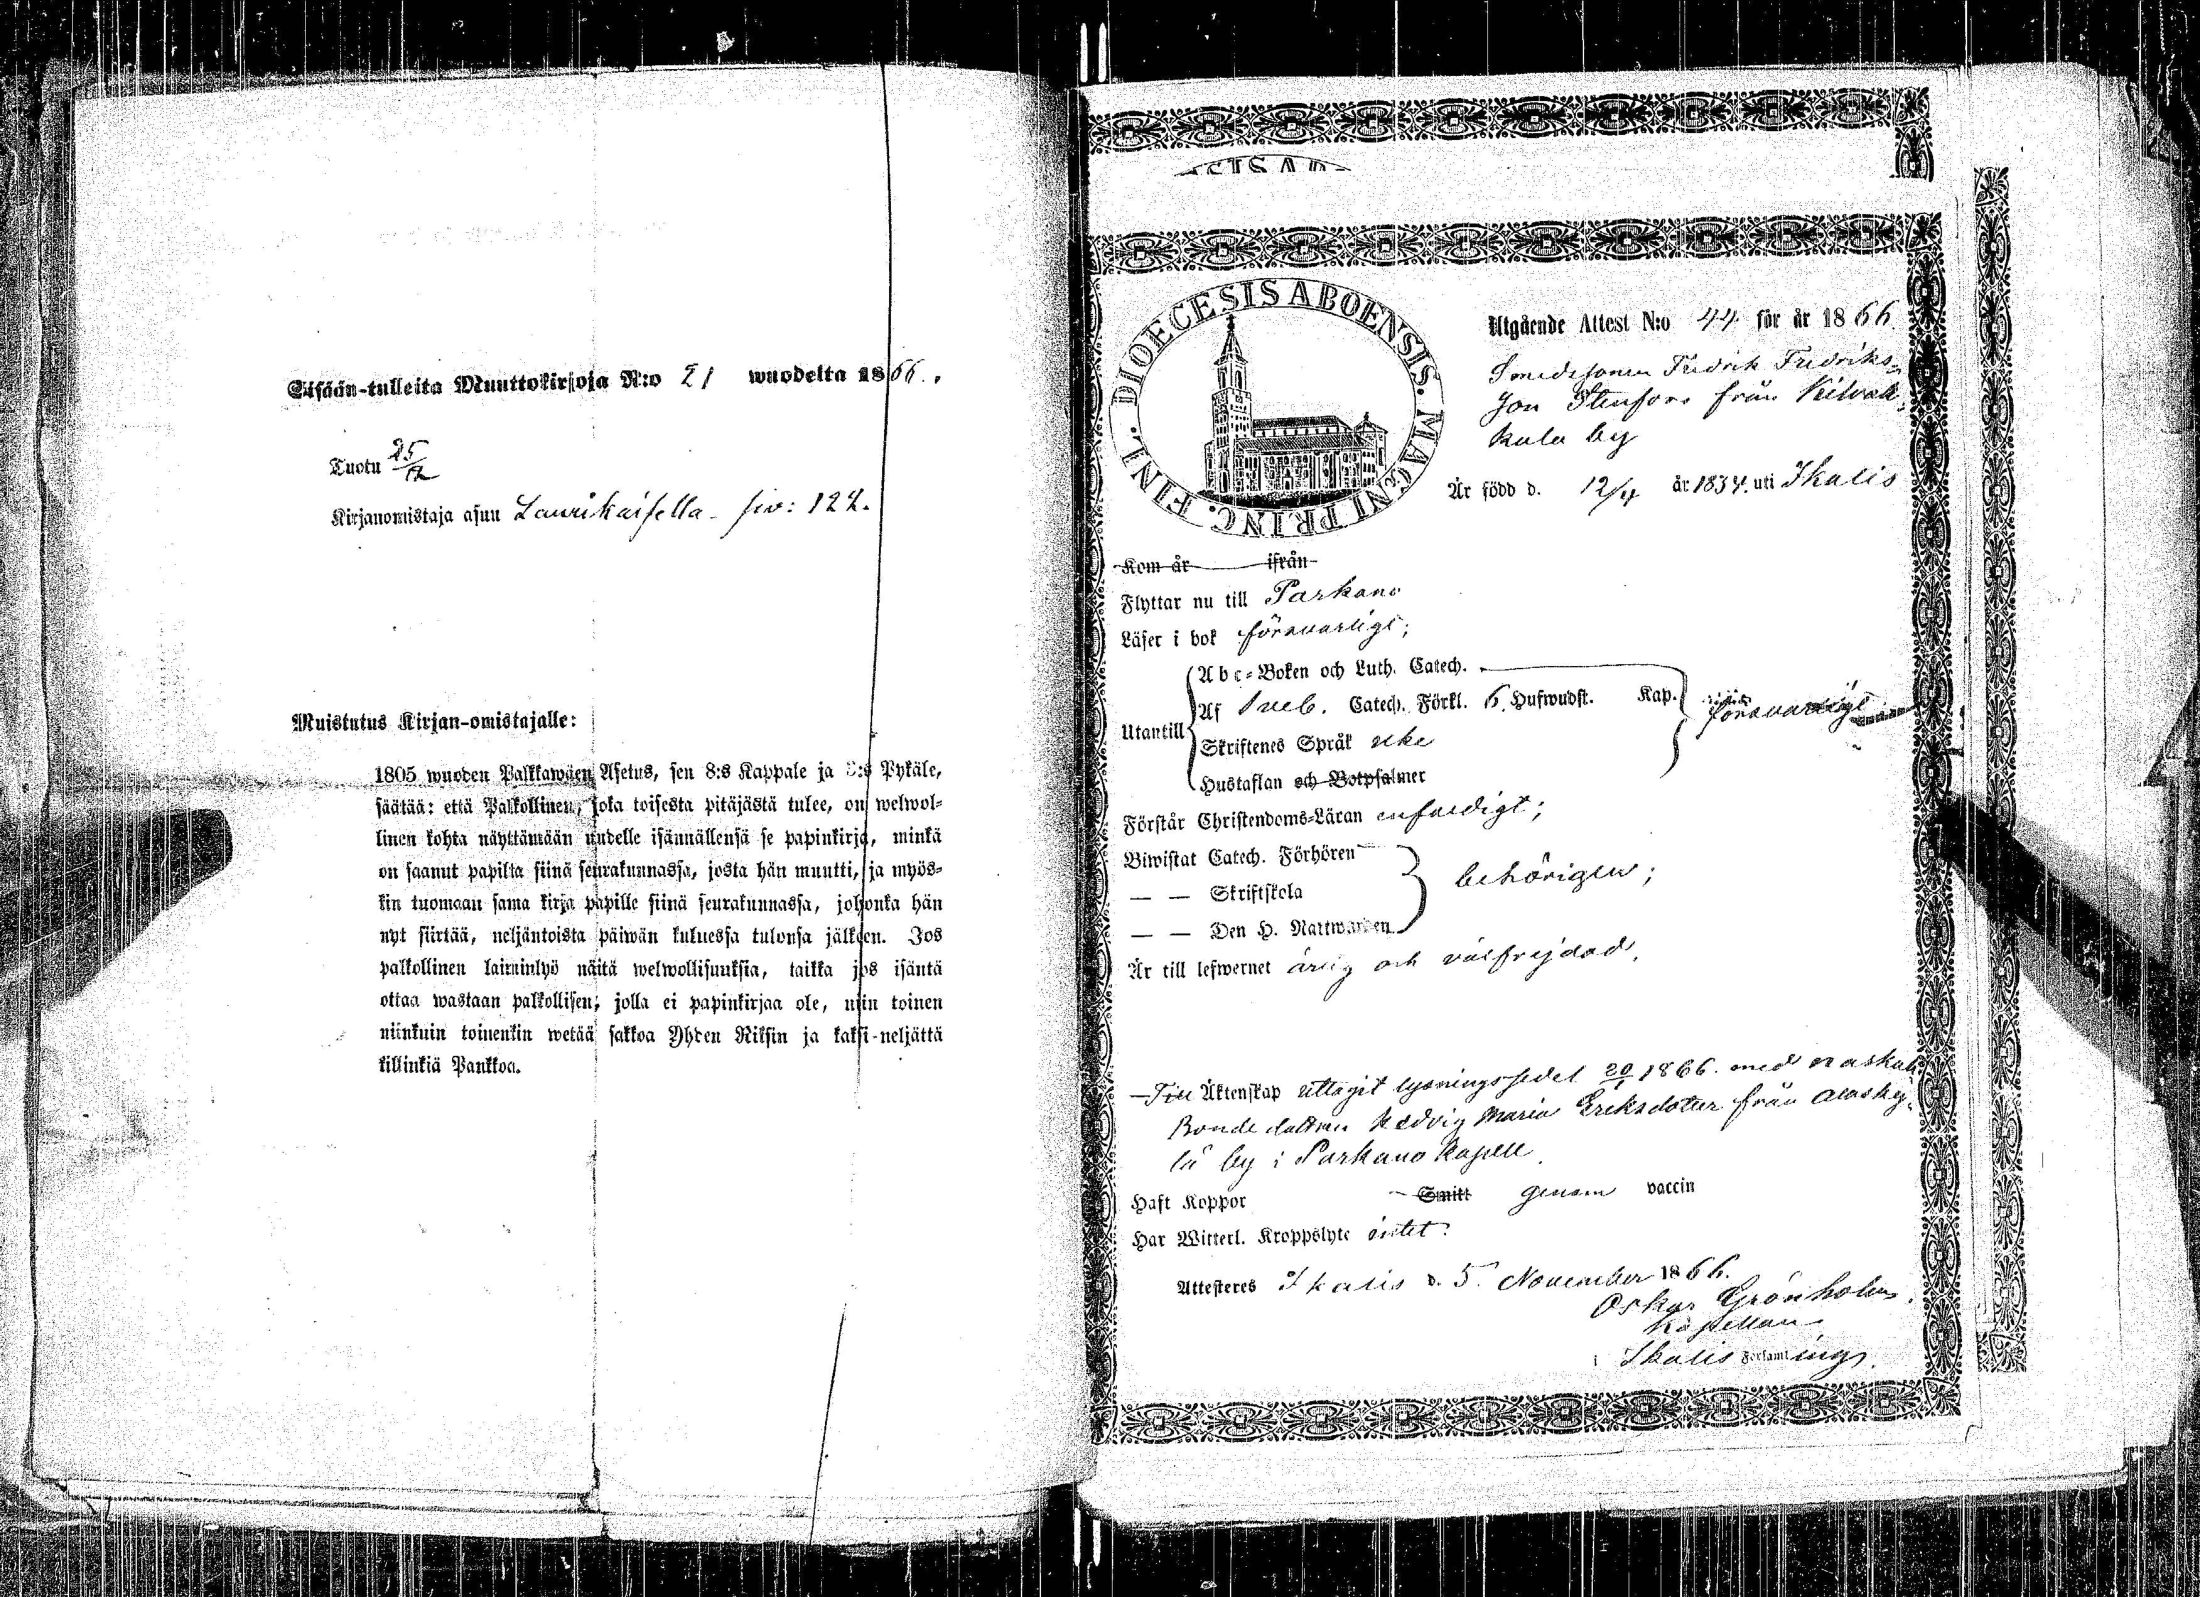 Sisään-tulleita Muuttokirjoja N:o 21 wuodelta 1866.
Tuotu 25/12
Kirjanomistaja asuu Laurikaisella siv: 122.
Muistutus Kirjan-omistajalle:
1805 wuoden Palkkawäen Asetus, sen 8:s Kappale ja :s Pykäle,
säätää: että Palkollinen, joka toisesta pitäjästä tulee, on welwol-
linen kohta näyttämään uudelle isännällensä se papinkirja, minkä
on saanut papilta siinä seurakunnassa, josta hän muutti, ja myös-
kin tuomaan sama kirja papille siinä seurakunnassa, johonka hän
nyt siirtää, neljäntoista päiwän kuluessa tulonsa jälkeen. Jos
palkollinen laiminlyö näitä welwollisuuksia, taikka jos isäntä
ottaa wastaan palkollisen, jolla ei papinkirjaa ole, niin toinen
niinkuin toinenkin wetää sakkoa Yhden Riksin ja kaksi-neljättä
killinkiä Pankkoa.
DIOECESIS ABOENSIS. MAGNI PRINC. FINL.
Utgående Attest N:o 44 för år 1866.
Smedssonen Fredrik Fredriks-
son Stenfors från Kilvak-
kala by
Är född d. 12/4 år 1834. uti Ikalis
Kom år ifrån
Flyttar nu till Parkano
Läser i bok försvarligt;
Abc-Boken och Luth. Catech.
Utantill Af Sveb. Catech. Förkl. 6. Hufwudst. Kap. försvarligt
Skriftenes Språk icke
Hustaflan och Botpsalmer
Förstår Christendoms-Läran enfaldigt;
Biwistat Catech. Förhören
— — Skriftskola behörigen;
— — Den H. Nattwarden
Är till lefwernet ärlig och välfrejdad.
Till Äktenskap uttagit lysningssedel 20/1 1866. med
Bonde dottren Hedvig Maria Eriksdotter från Alaskyl-
lä by i Parkano Kapell.
Haft Koppor Smitt genom vaccin
Har Witterl. Kroppslyte intet.
Attesteres Ikalis d. 5. November 1866.
Oskar Grönholm.
Kapellan
i Ikalis Församlings.